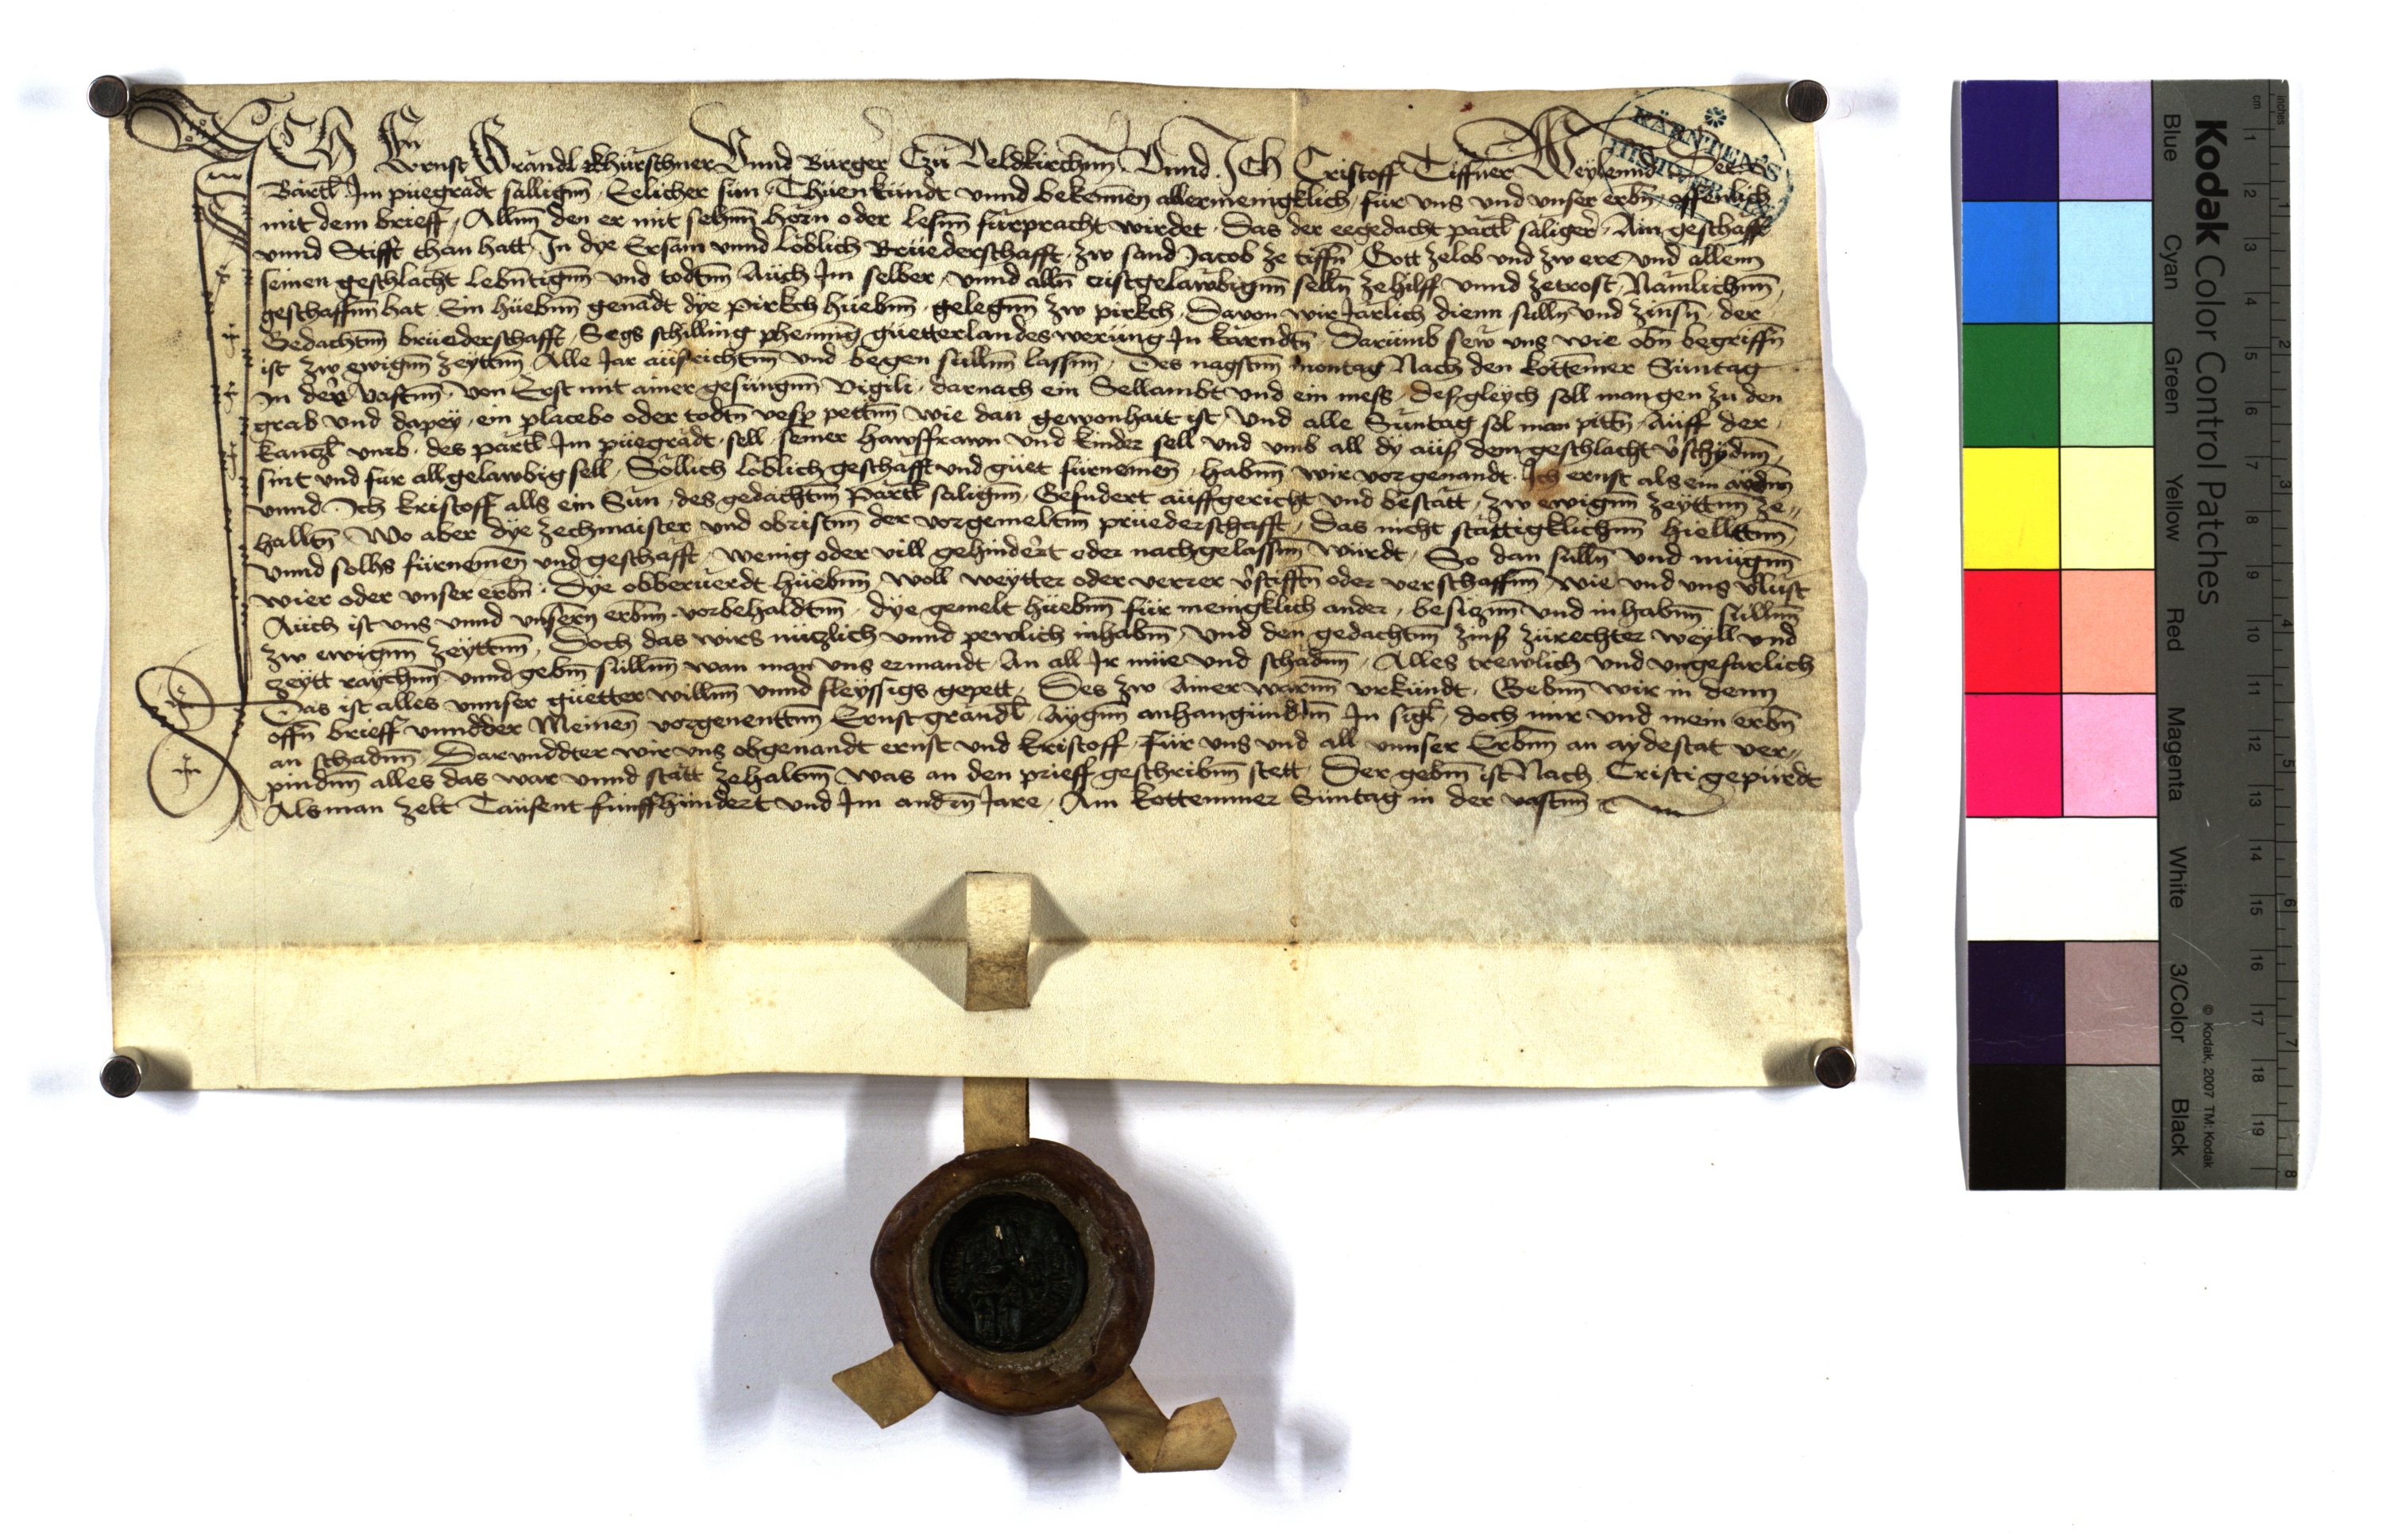 ICH Ernst Grandl Khürschner Vnnd Bürger Czu Veldkirchnn. Vnnd. Ich Cristoff Tiffner Weylennd Des
Bartl Im püegradt sallignn, Eelicher sun, Thüen kündt vnnd bekennen allermenigklich, für vns vnd vnser erbn offenlich
mit dem brieff, Allnn den er mit sehnn hörn oder lesnn fürpracht wirdet. Das der eegedacht partl saliger, Ain geschafft
vnnd Stifft than hatt, In dye Ersam vnnd Löblich Brüederschafft, zw sand Jacob ze tiffn, Gott zelob vnd zw ere, vnd allem
seinen geschlächt Lebntignn vnd todtnn Auch Im selber, vnnd alln cristgelawbignn selln zehilff vnnd zetrost, Namlichnn,
geschaffnn hat, Ein hüebnn genadt dye pirkch hüebnn, gelegnn zw pirkch, Davon wir Järlich dienn sulln vnd zinsn, der
Gedachtnn brüederschafft, Segs schilling phennig güetter landeswerüng In karndtn, Darümb sew vns wie obn begriffn
ist zw ewignn zeyttnn, Alle Jar aüßrichtnn vnd begen süllnn lassnn, Des nagstnn montag Nach den kottemer Süntag
In der vastnn, von Erst mit ainer gesüngnn Vigili, darnach ein Sellambt vnd ein mess, desgleych soll man gen zu den
grab vnd dapey, ein placebo oder todtn vesp pettnn wie dan gewonhait ist, Vnd alle Suntag sol man pittn, Aüff der
kanczl vmb, des partl Im püegradt, sell, seiner hawsfrawn vnd kinder sell vnd vmb all dy aüß dem geschlacht vschydnn,
sint vnd für all gelawbig sell, Söllich löblich geschafft vnd güet fürnemen, habnn wir vorgenandt. Ich ernst als ein aydnn
vnnd Ich kristoff alls ein Sün, des gedachtnn Partl salignn, Gefudert aüffgericht vnd bestätt, zw ewignn zeyttnn ze=
halltn, Wo aber dye zechmaister vnd obristnn der vorgemeltnn prüederschafft, Das nicht stättigklichnn hiellttnn,
vnnd solhs fürnemen vnd geschafft, wenig oder vill gehindert oder nachgelassnn würdt, So dan sulln vnd mügnn
wier oder vnser erbn, Dye obberuerdt hüebnn, woll weytter oder verrer vstifftn oder verschaffnn, wie vnd vns vlust
Aüch ist vns vnnd vnsern erbnn vorbehaldtnn, dye gemelt hüebnn für menigklich ander, besiznn vnd inhabnn süllnn
zw ewignn zeyttnn, Doch das wirs nüczlich vnnd pewlich inhabnn, vnd den gedachtnn zinß zürechter weyll vnd
zeytt raychnn vnnd gebnn süllnn wan man vns ermandt, An all Ir müe vnd schadnn, Alles trewlich vnd vngefarlich
Das ist alles vnnser güetter willnn vnnd fleyssigs gepett, Des zw Ainer warnn vrkündt, Gebnn wir in denn
offn brieff vnndder Meinen vorgenenttnn Ernst grandl, Aygnn anhangündtnn In sigl, doch mir vnd mein erbn
an schadnn, Dar vnddter wir vns obgenandt ernst vnd kristoff, Für vns vnd all vnnser Erbnn an aydestat ver=
pindnn alles das war vnnd statt zehaltnn was an den prieff geschribnn stett, Der gebnn ist Nach Cristi gepürdt
Als man zelt Taüsent fünffhündert vnd Im andrn Jare, Am kottemmer Süntag in der vastnn
KÄRNTEN'S
Kodak Color Control Patches
Blue Cyan Green Yellow Red Magenta White 3/Color Black
© Kodak, 2007 TM: Kodak
inches 1 2 3 4 5 6 7 8
cm 1 2 3 4 5 6 7 8 9 10 11 12 13 14 15 16 17 18 19